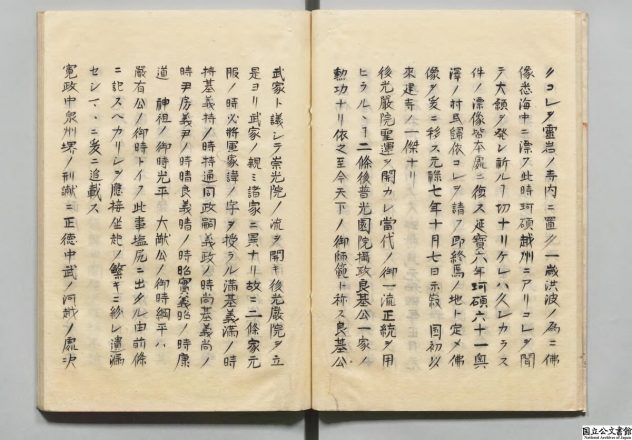 クコレヲ靈岩ノ寺内ニ置ク一歳洪波ノ為ニ佛
像悉海中ニ漂フ此時珂碩越州ニアリコレヲ聞
テ大願ヲ発シ祈ルヿ切ナリケレハ久レカラス
件ノ漂像皆本處ニ復ス延寳六年珂碩六十一奥
澤ノ村民歸依コレヲ請フ即終焉ノ地ト定メ佛
像ヲ爰ニ移ス元祿七年十月七日示寂ス國初以
来建寺ノ一傑ナリ
後光嚴院聖運ヲ開カレ當代ノ御一流正統ヲ用
ヒラルヽヿ二條後普光園院攝政良基公一家ノ
勲功ナリ依之至今天下ノ御師範ト称ス良基公
武家ト議レテ崇光院ノ流ヲ閣キ後光嚴院ヲ立
是ヨリ武家ノ親ミ諸家ニ異ナリ故ニ二條家元
服ノ時必将軍家諱ノ字ヲ授ラル滿基義滿ノ時
持基義持ノ時持通同政嗣義政ノ時尚基義尚ノ
時尹房義尹ノ時晴良義晴ノ時昭實義昭ノ時康
道 神祖ノ御時光平 大猷公ノ御時綱平ハ
嚴有公ノ御時トイフ此事塩尻ニ出タル由前條
ニ記スヘカリレヲ應接坐起ノ繁キニ紛レ遺漏
セレヽニ爰ニ追載ス
寛政中泉州堺ノ刑獄ニ正德中武ノ河越ノ處决
国立公文書館
National Archives of Japan